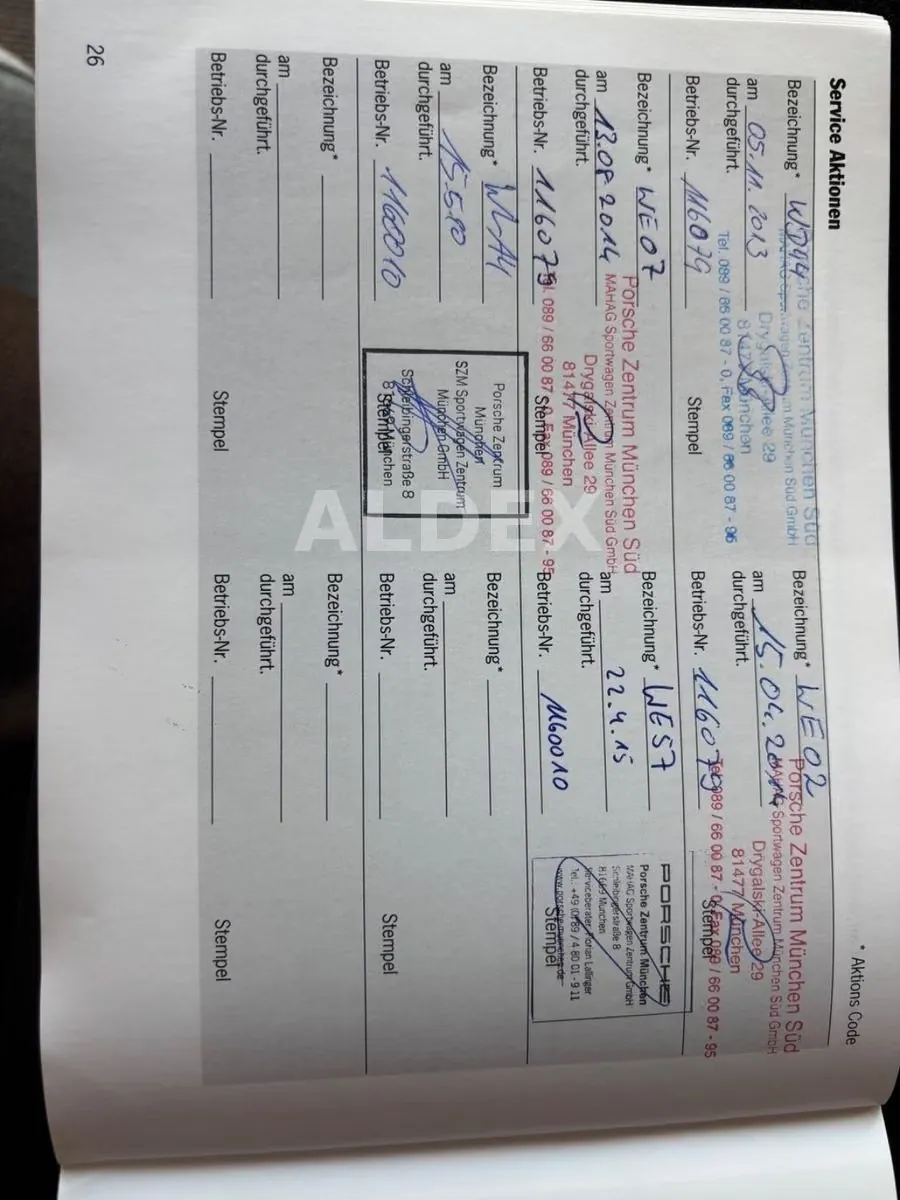 Service Aktionen
* Aktions Code
Bezeichnung*
am 05.11.2013
durchgeführt.
Betriebs-Nr. 116079
Stempel
Zentrum München Süd
MAHAG Sportwagen Zentrum München Süd GmbH
Drygalski-Allee 29
81477 München
Tel. 089 / 66 00 87 - 0, Fax 089 / 66 00 87 - 95
Bezeichnung* WE02
am 15.04.2014
durchgeführt.
Betriebs-Nr. 116079
Stempel
Porsche Zentrum München Süd
MAHAG Sportwagen Zentrum München Süd GmbH
Drygalski-Allee 29
81477 München
Tel. 089 / 66 00 87 - 0, Fax 089 / 66 00 87 - 95
Bezeichnung* WE07
am 13.08.2014
durchgeführt.
Betriebs-Nr. 116079
Stempel
Porsche Zentrum München Süd
MAHAG Sportwagen Zentrum München Süd GmbH
Drygalski-Allee 29
81477 München
Tel. 089 / 66 00 87 - 0, Fax 089 / 66 00 87 - 95
Bezeichnung* WE57
am 22.4.15
durchgeführt.
Betriebs-Nr. 1160010
Stempel
PORSCHE
Porsche Zentrum München
MAHAG Sportwagen Zentrum GmbH
Schleibingerstraße 8
81669 München
Serviceberater Florian
Tel.: +49 (0)89 / 4 80 01 - 9 11
Bezeichnung*
am
durchgeführt.
Betriebs-Nr. 1160010
Stempel
Porsche Zentrum
München
SZM Sportwagen Zentrum
München GmbH
Schleibingerstraße 8
München
Bezeichnung*
am
durchgeführt.
Betriebs-Nr.
Stempel
Bezeichnung*
am
durchgeführt.
Betriebs-Nr.
Stempel
Bezeichnung*
am
durchgeführt.
Betriebs-Nr.
Stempel
26
ALDEX